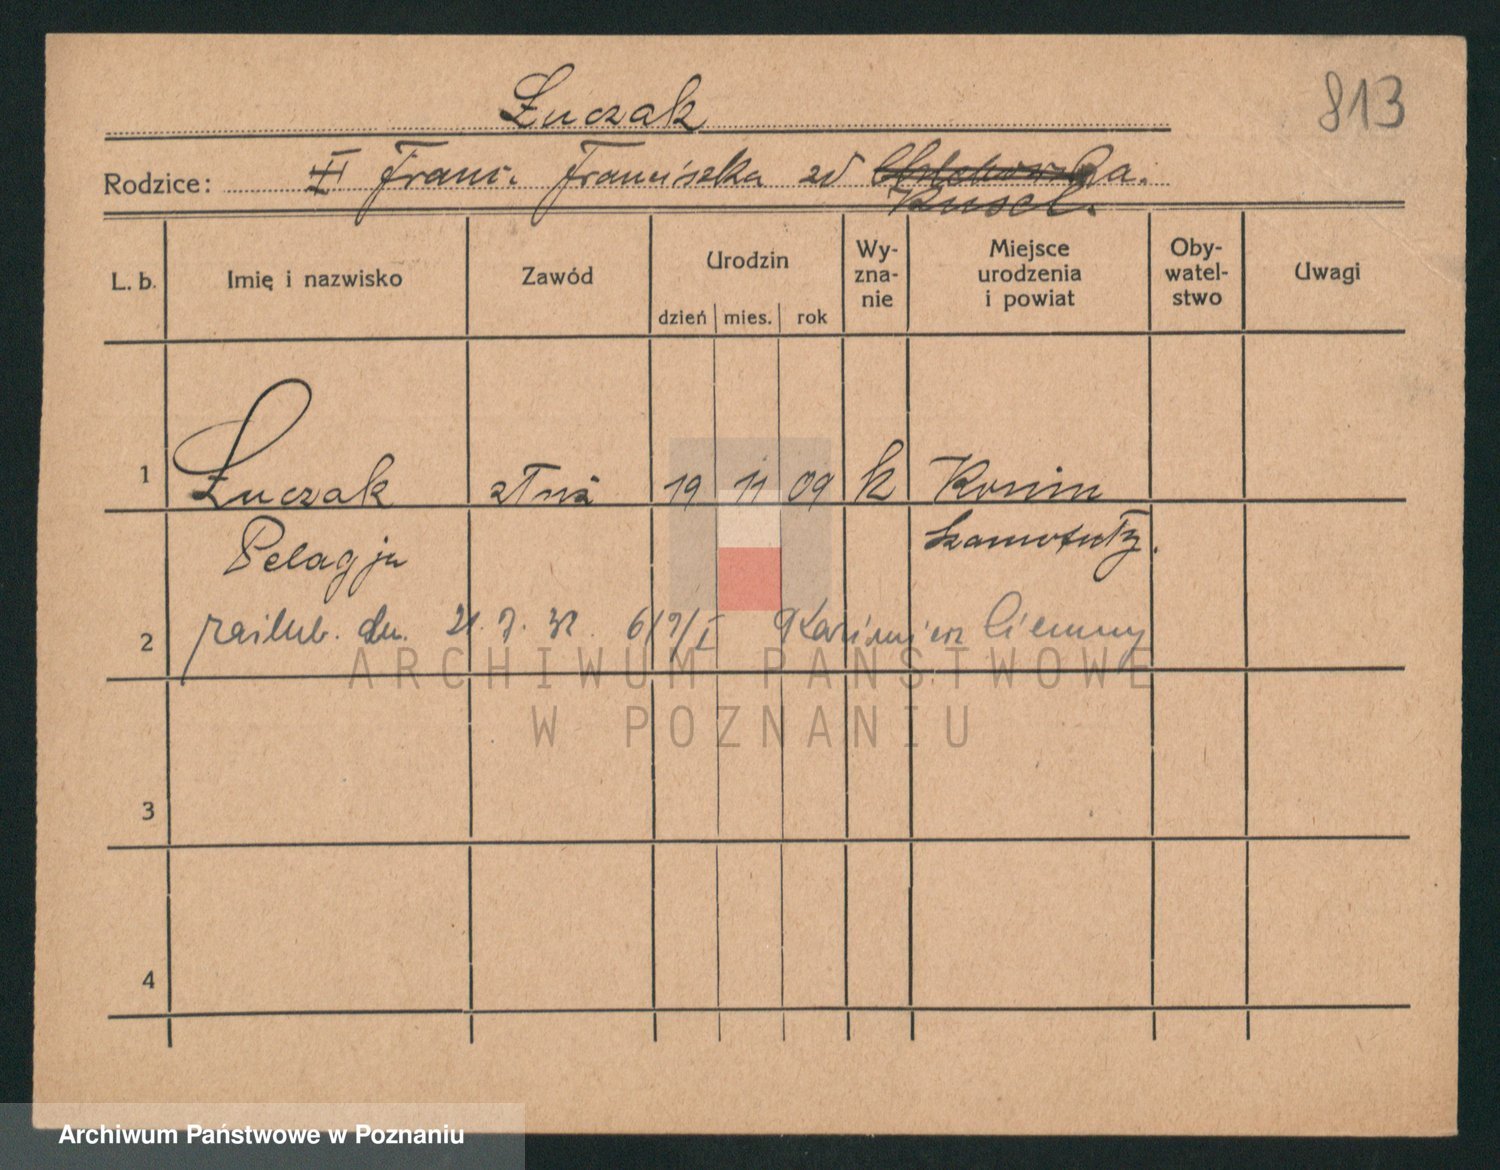 Łuczak
813
Rodzice: II Franc. Franciszka zd
L. b. Imię i nazwisko Zawód Urodzin dzień mies. rok Wy-zna-nie Miejsce urodzenia i powiat Oby-watel-stwo Uwagi
1 Łuczak 19 11 09 k Konin
Pelagja Szamotuły.
2 zaślub. dn. 7. Kazimierz
ARCHIWUM PAŃSTWOWE
W POZNANIU
3
4
Archiwum Państwowe w Poznaniu